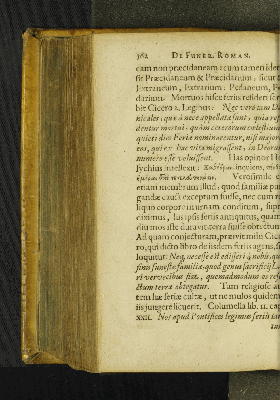 362 DE FUNER. ROMAN.
eam non præcidaneam atque tamen idem
sit Præcidaneum & Præcidarium, sicut &
Extraneum, Extrarium: Pedaneum, Pe-
darium. Mortuos fuisse feriis residen scri-
bit Cicero 2. Legibus: Nec vero tam De-
nicales: quæ à nece appellatæ sunt, quia re
dentur mortui: quàm ceterorum cœlestium
quieti dies Feriæ nominarentur, nisi majo-
res, qui ex hac vita migrassent, in Deorum
numero esse voluissent. Has opinor He-
sychius intellexit: inquiens,
Verosimile
etiam in cultum illud, quod familiæ pur-
gandæ causâ exceptum fuisse, nec cum re-
liquo corpore in urnam consitum, supra
diximus, ius ipsis feriis antiquitus, quam-
diu mos iste duravit terrâ fuisse obrectum.
Ad quam conjecturam, præivit mihi Cice-
ro, qui dicto libro de iisdem feriis agens,
loquitur: Neq; necesse est edisseri à nobis, qui
finis funestæ familiæ, quod genus sacrificii La-
ri vervecibus fiat, quemadmodum os rese-
ctum terrâ obtegatur. Tum religiosè au-
tem hæ feriæ cultæ, ut ne mulos quidem
iis jungere licuerit. Columella lib. II. cap.
XXII. Nos apud Pontifices legimus feriis tan-